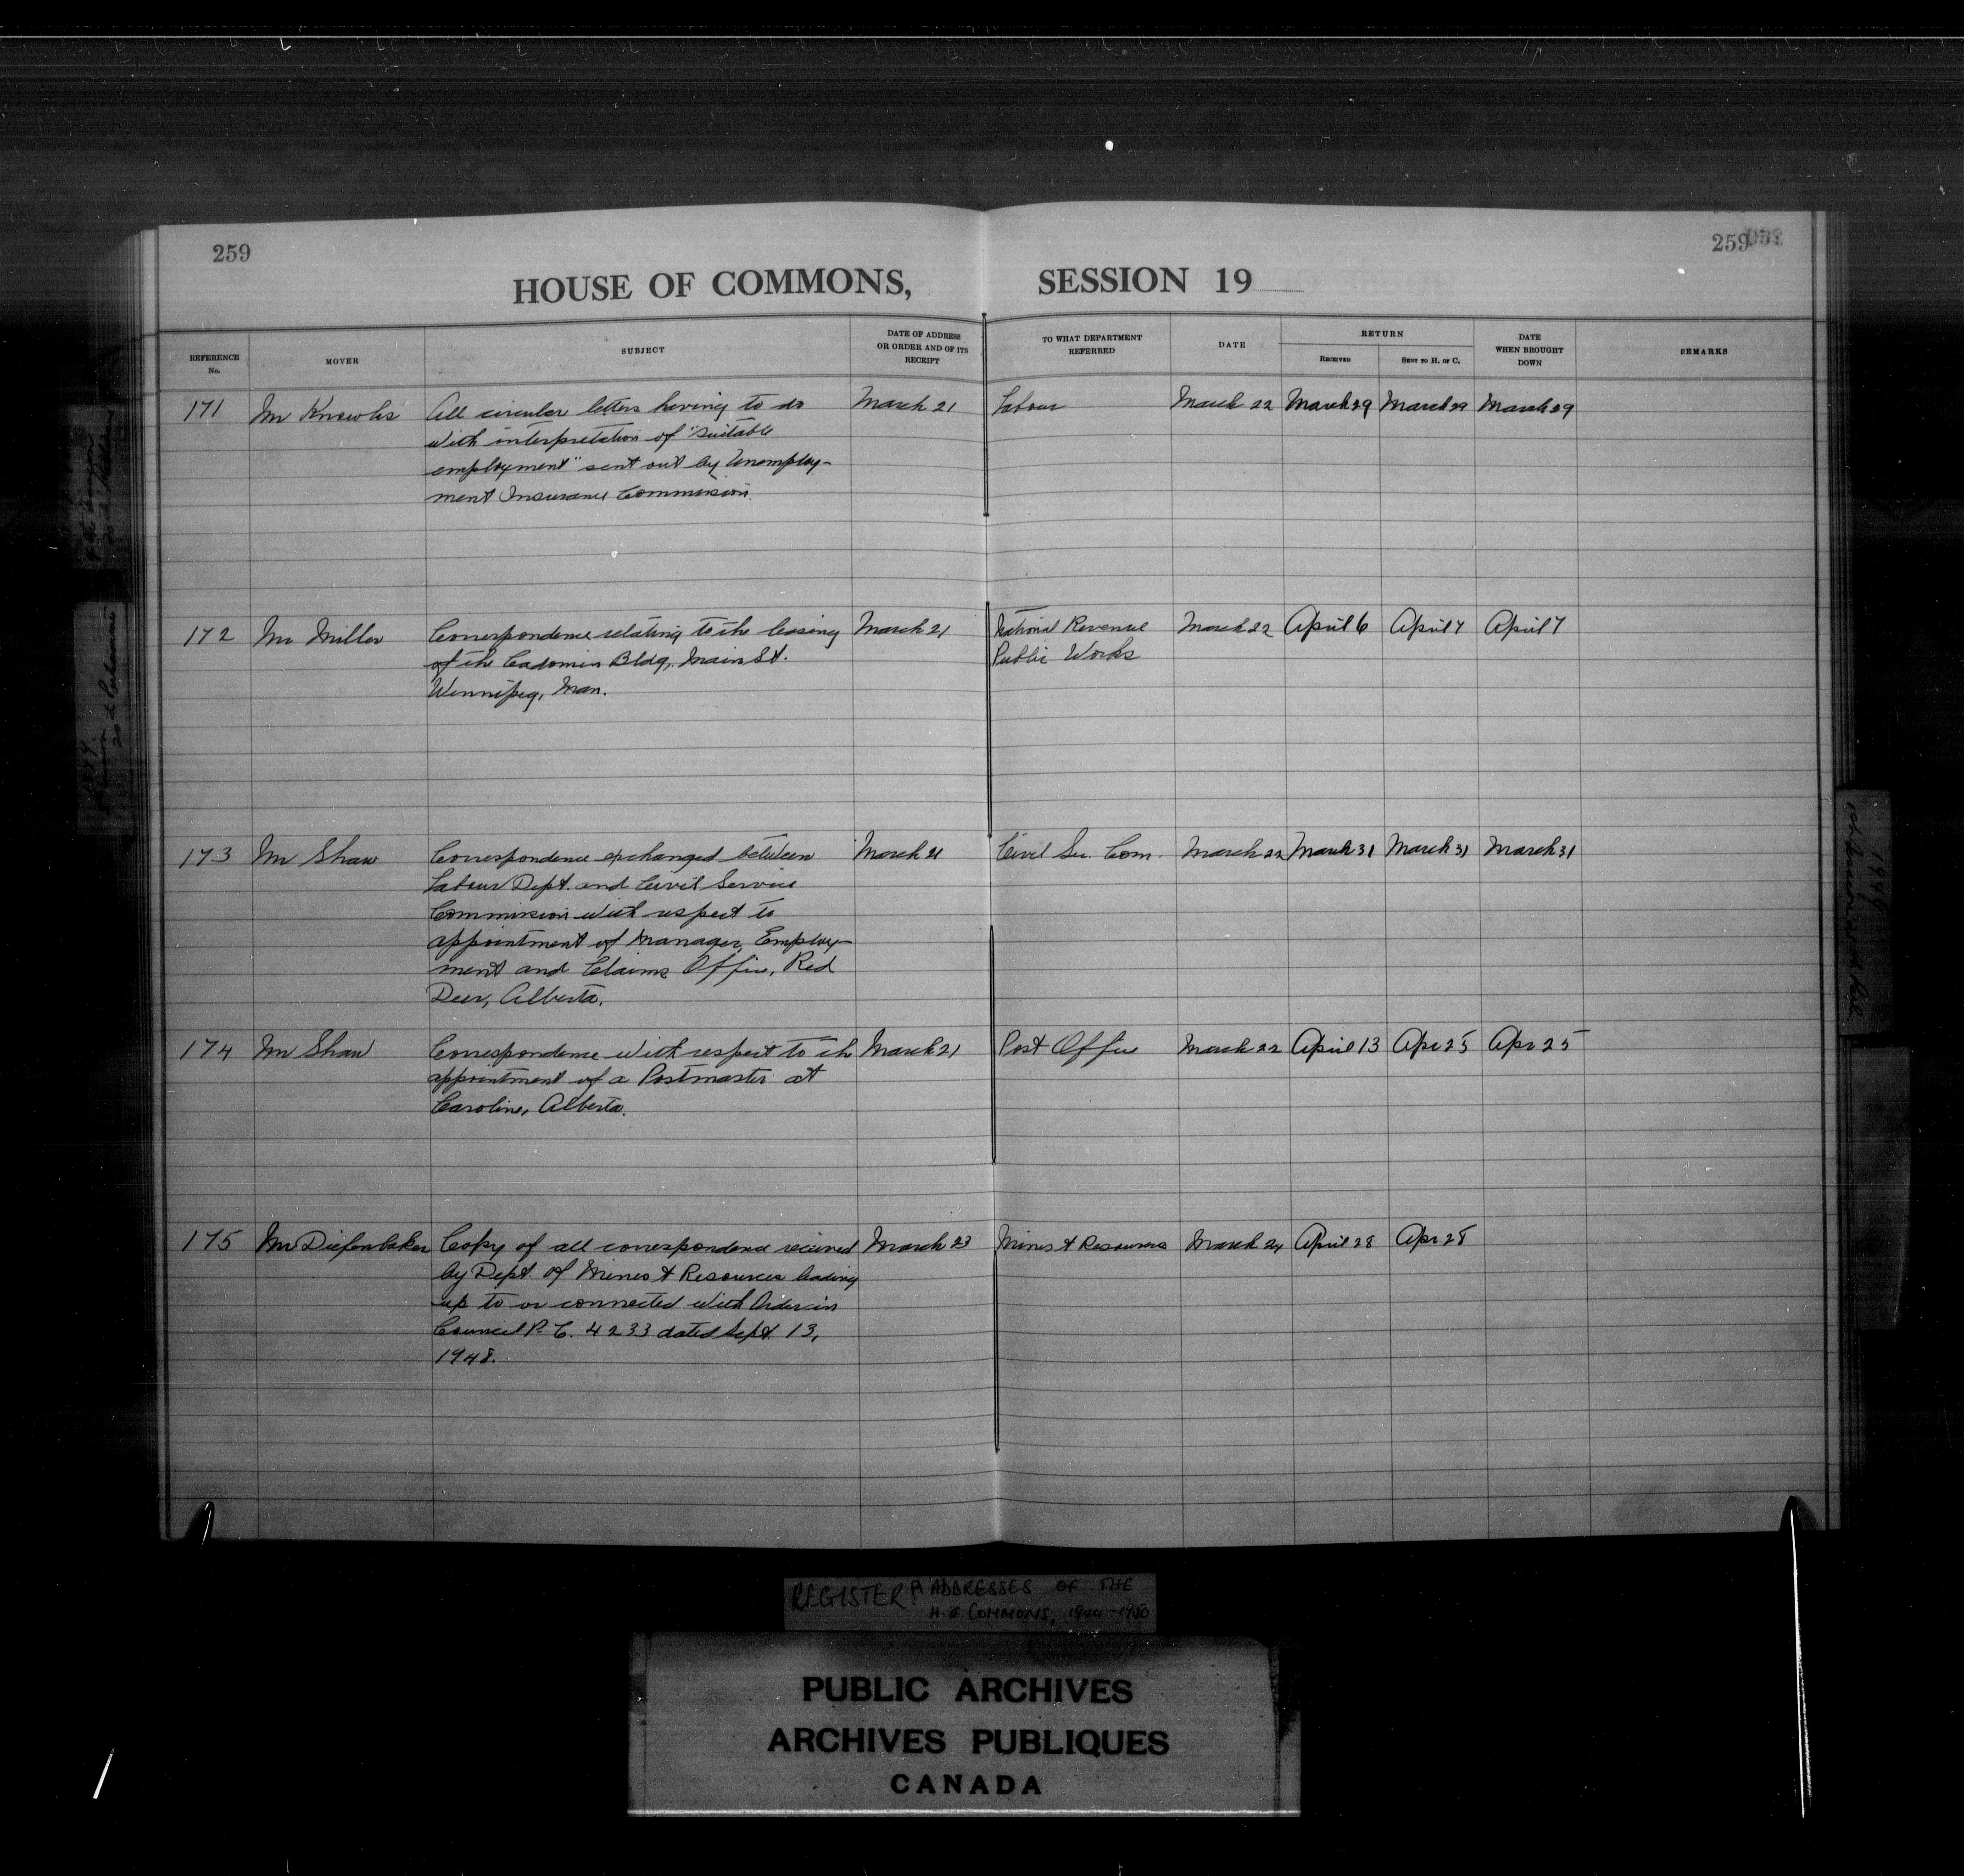 259
259
HOUSE OF COMMONS, SESSION 19
REFERENCE No. MOVER SUBJECT DATE OF ADDRESS OR ORDER AND OF ITS RECEIPT TO WHAT DEPARTMENT REFERRED DATE RETURN RECEIVED SENT TO H. OF C. DATE WHEN BROUGHT DOWN REMARKS
171 Mr Knowles All circular letters having to do March 21 Labour March 22 March 29 March 29 March 29
with interpretation of "suitable
employment" sent out by Unemploy-
ment Insurance Commission.
172 Mr Miller Correspondence relating to the leasing March 21 National Revenue March 22 April 6 April 7 April 7
of the Cadomin Bldg, Main St. Public Works
Winnipeg, Man.
173 Mr Shaw Correspondence exchanged between March 21 Civil Ser. Com. March 22 March 31 March 31 March 31
Labour Dept. and Civil Service
Commission with respect to
appointment of Manager, Employ-
ment and Claims Office, Red
Deer, Alberta.
174 Mr Shaw Correspondence with respect to the March 21 Post Office March 22 April 13 Apr 25 Apr 25
appointment of a Postmaster at
Caroline, Alberta.
175 Mr Diefenbaker Copy of all correspondence received March 23 Mines & Resources March 24 April 28 Apr 28
by Dept. of Mines & Resources leading
up to or connected with Order in
Council P.C. 4233 dated Sept. 13,
1948.
REGISTER ADDRESSES OF THE
H. of COMMONS, 1944-1950
PUBLIC ARCHIVES
ARCHIVES PUBLIQUES
CANADA